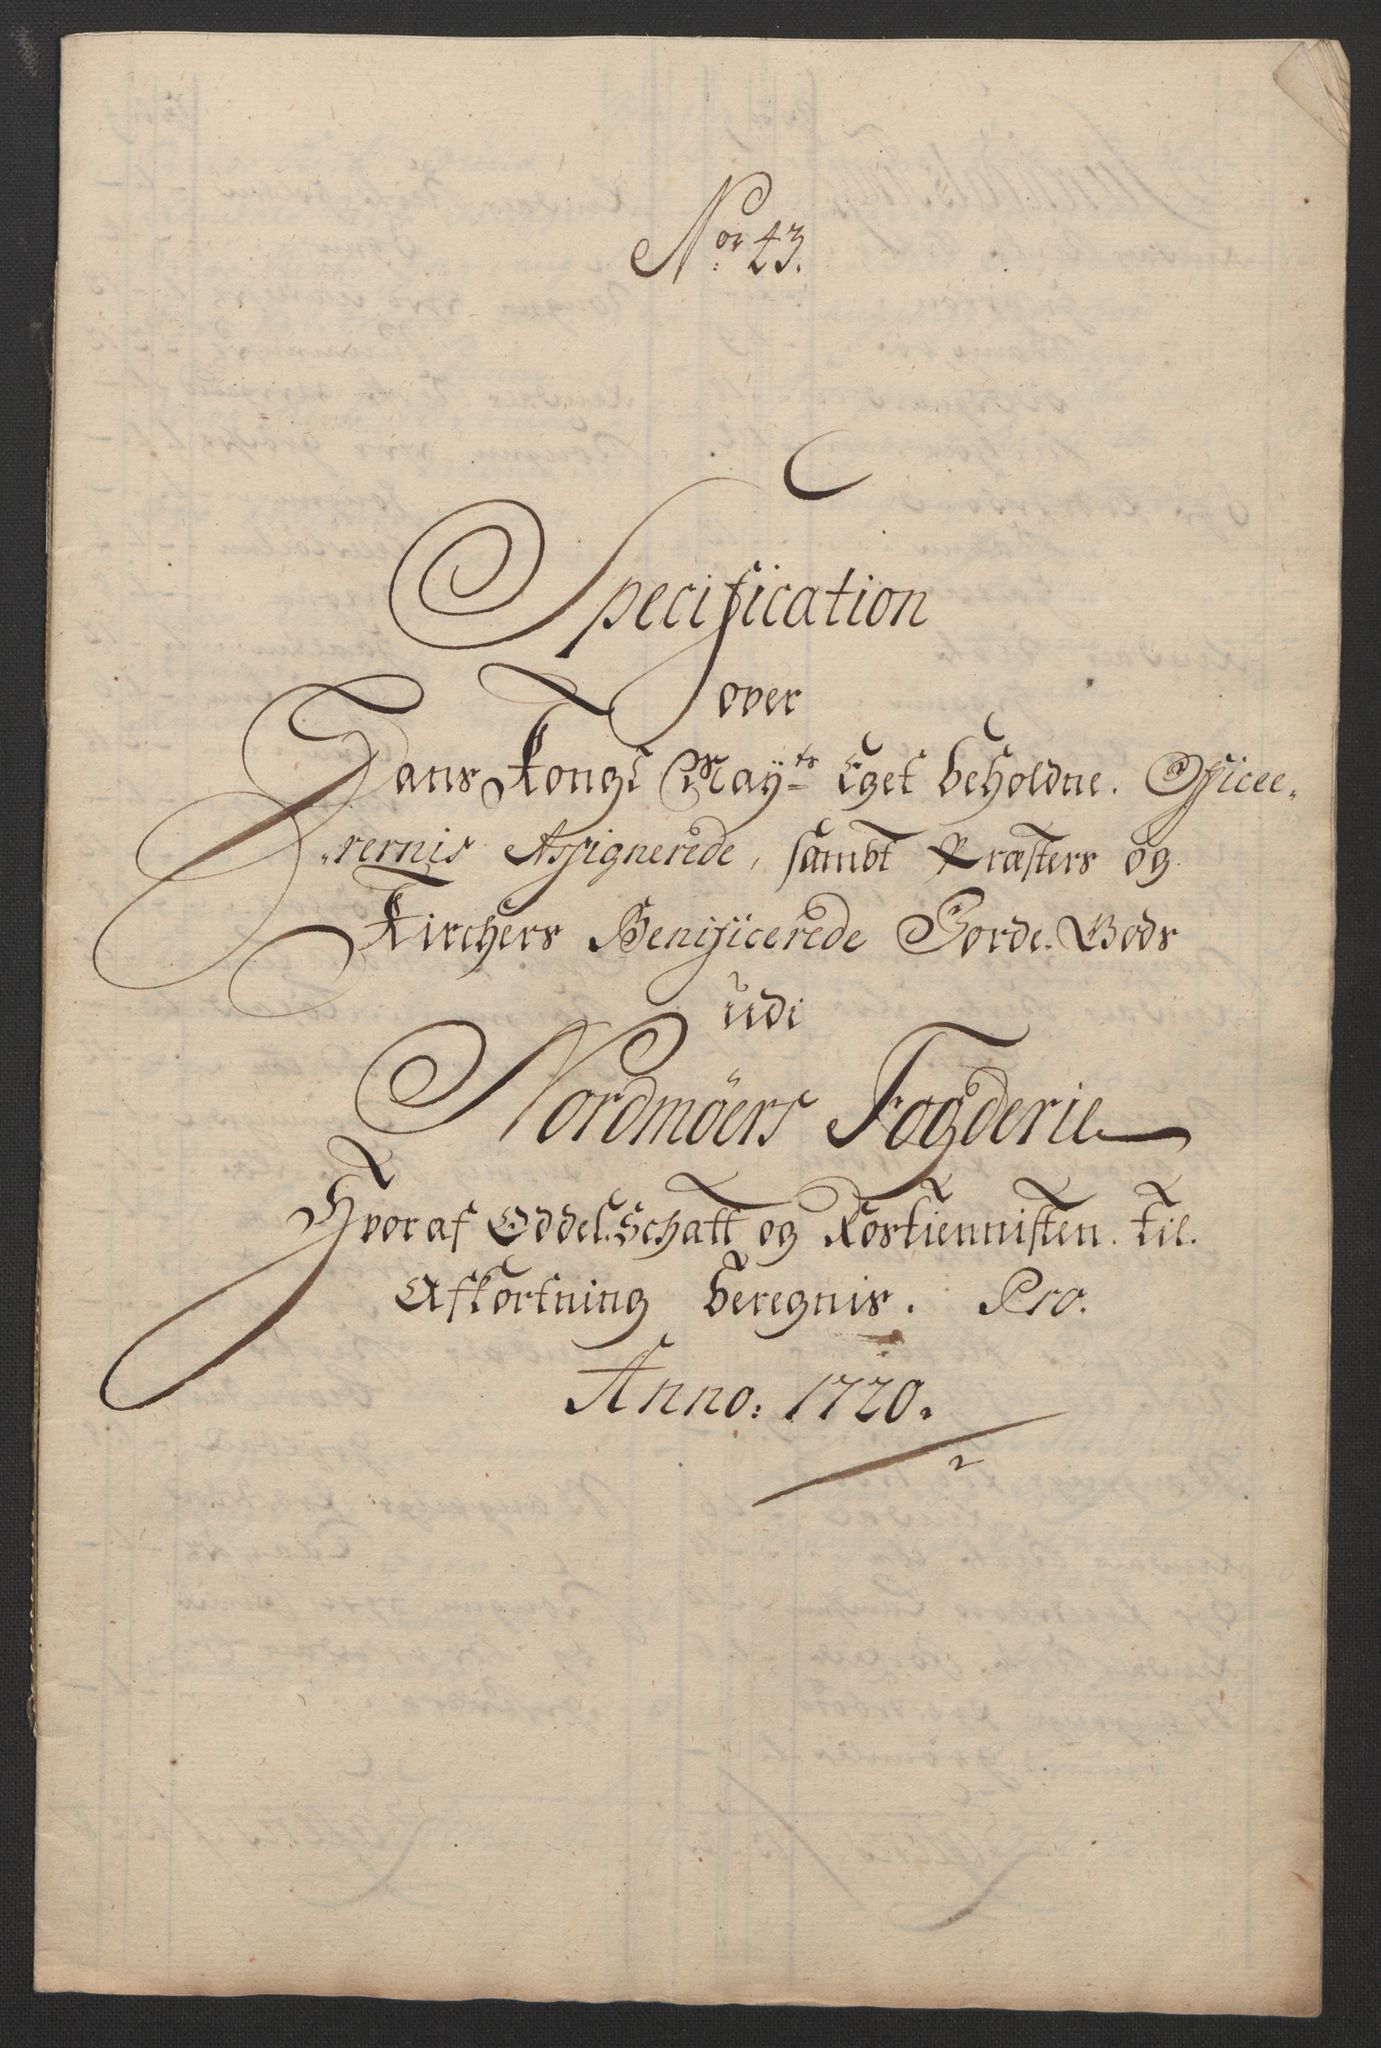 Nor 43.
Specification
over
Hans Kongl Mayts Eget beholdne. Officee,,
,,rernis Assignerede, sambt Præsters og
Kirchers Benificerede Jorde-Gods
udi
Nordmöers Fogderie
Hvoraf Oddel-Schatt og Rostiennisten til
Afkortning beregnis. Pro.
Anno: 1720.